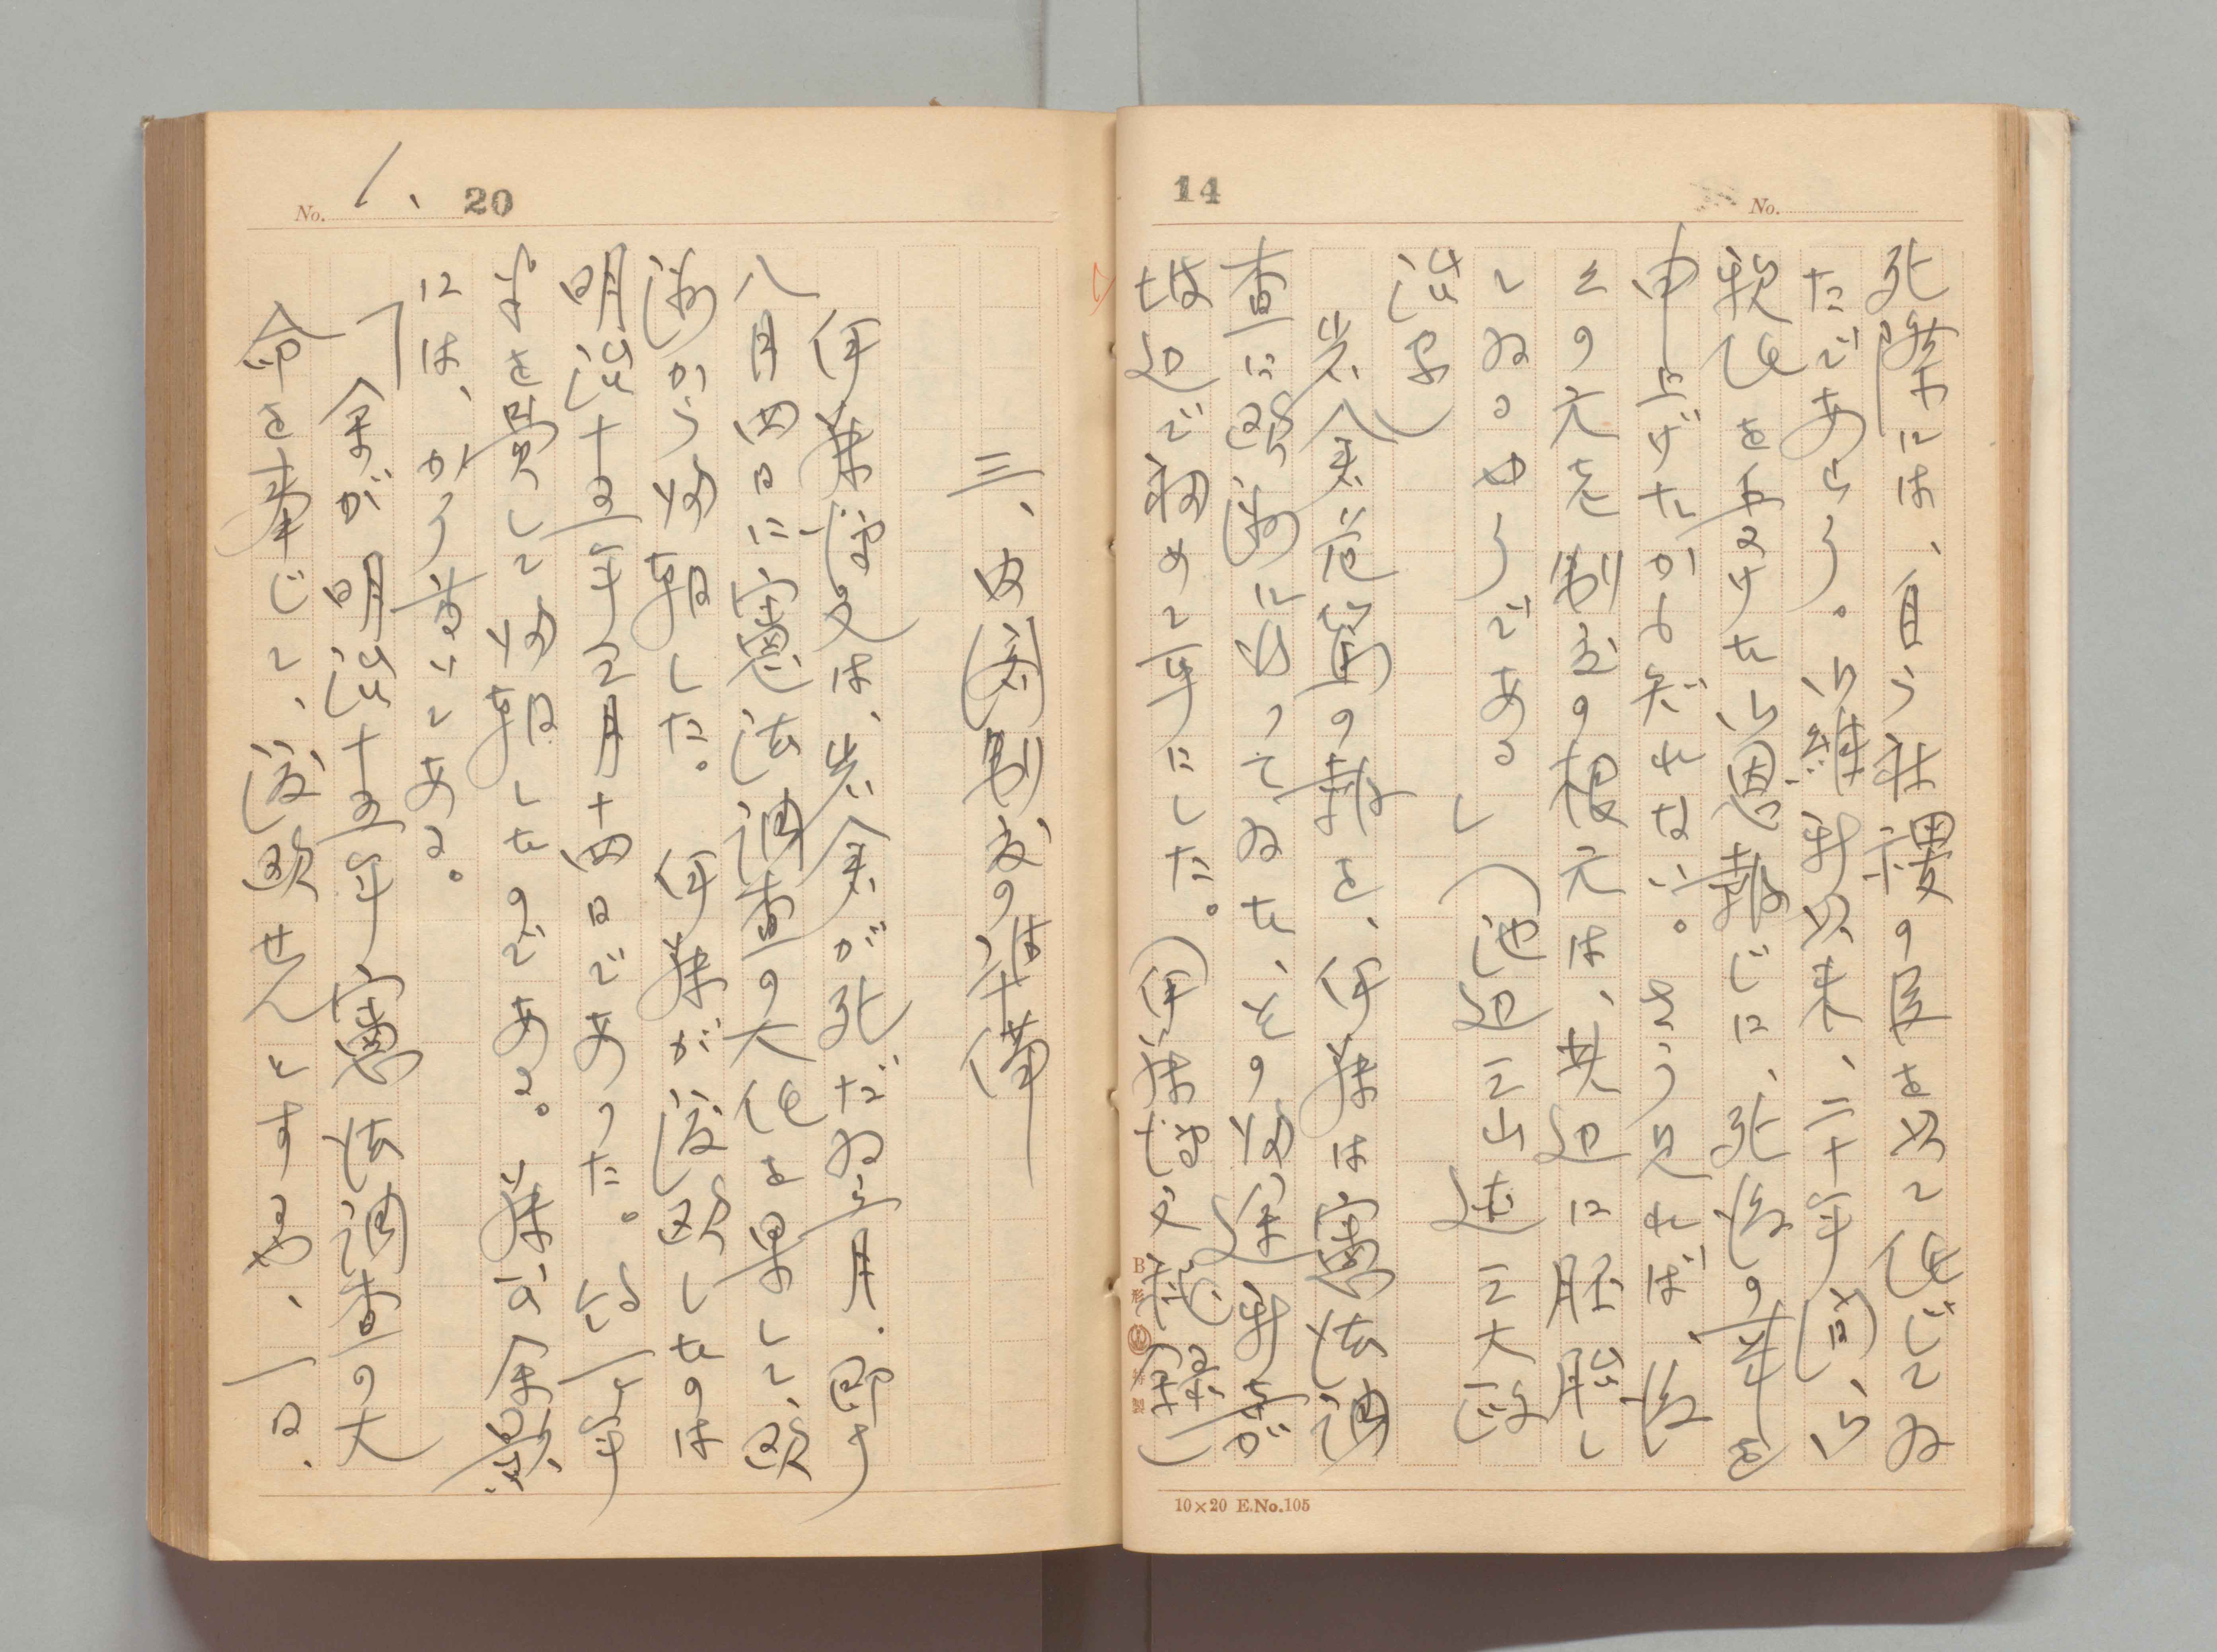 14
No.
死際には、自ら社稷の臣を以て任じてゐ
たであらう。御維新以来、二十年間、御
親任を受けた御恩報じに、死後の事を
申上げたかも知れない。さう見れば、後
々の元老制度の根元は、其辺に胚胎し
てゐるやうである」(池辺三山述三大政
治家)
岩倉危篤の報を、伊藤は憲法調
査に欧洲に行つてゐた、その帰途新嘉
坡辺で初めて耳にした。(伊藤博文秘録)
B形 特製
10×20 E.No.105
No. 1、 20
三、内閣制度の準備
伊藤博文は、岩倉が死だ翌月、即ち
八月四日に憲法調査の大任を果して、欧
洲から帰朝した。伊藤が渡欧したのは
明治十五年三月十四日であつた。約一年
半を費して帰朝したのである。藤公余影
には、かう書いてある。
「余が明治十五年憲法調査の大
命を奉じて、渡欧せんとするや、一日、